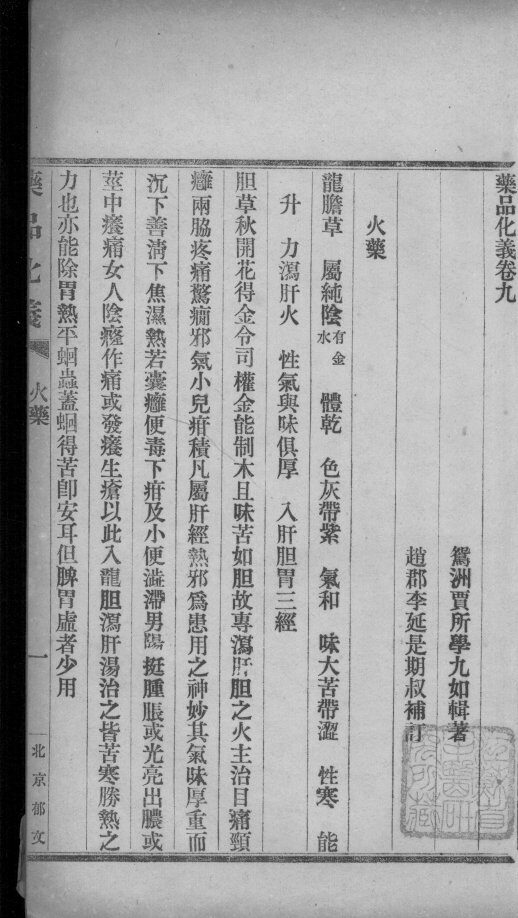 藥品化義卷九
鴛洲賈所學九如輯著
趙郡李延是期叔補訂
火藥
龍膽草　屬純陰有金水　體乾　色灰帶紫　氣和　味大苦帶澀　性寒　能
升　力瀉肝火　性氣與味俱厚　入肝胆胃三經
胆草秋開花得金令司權金能制木且味苦如胆故專瀉肝胆之火主治目痛頸
癰兩脇疼痛驚癇邪氣小兒疳積凡屬肝經熱邪爲患用之神妙其氣味厚重而
沉下善淸下焦濕熱若囊癰便毒下疳及小便澁滯男陽挺腫脹或光亮出膿或
莖中癢痛女人陰癃作痛或發癢生瘡以此入龍胆瀉肝湯治之皆苦寒勝熱之
力也亦能除胃熱平蛔蟲蓋蛔得苦卽安耳但脾胃虛者少用
藥品化義　火藥　一　北京郁文